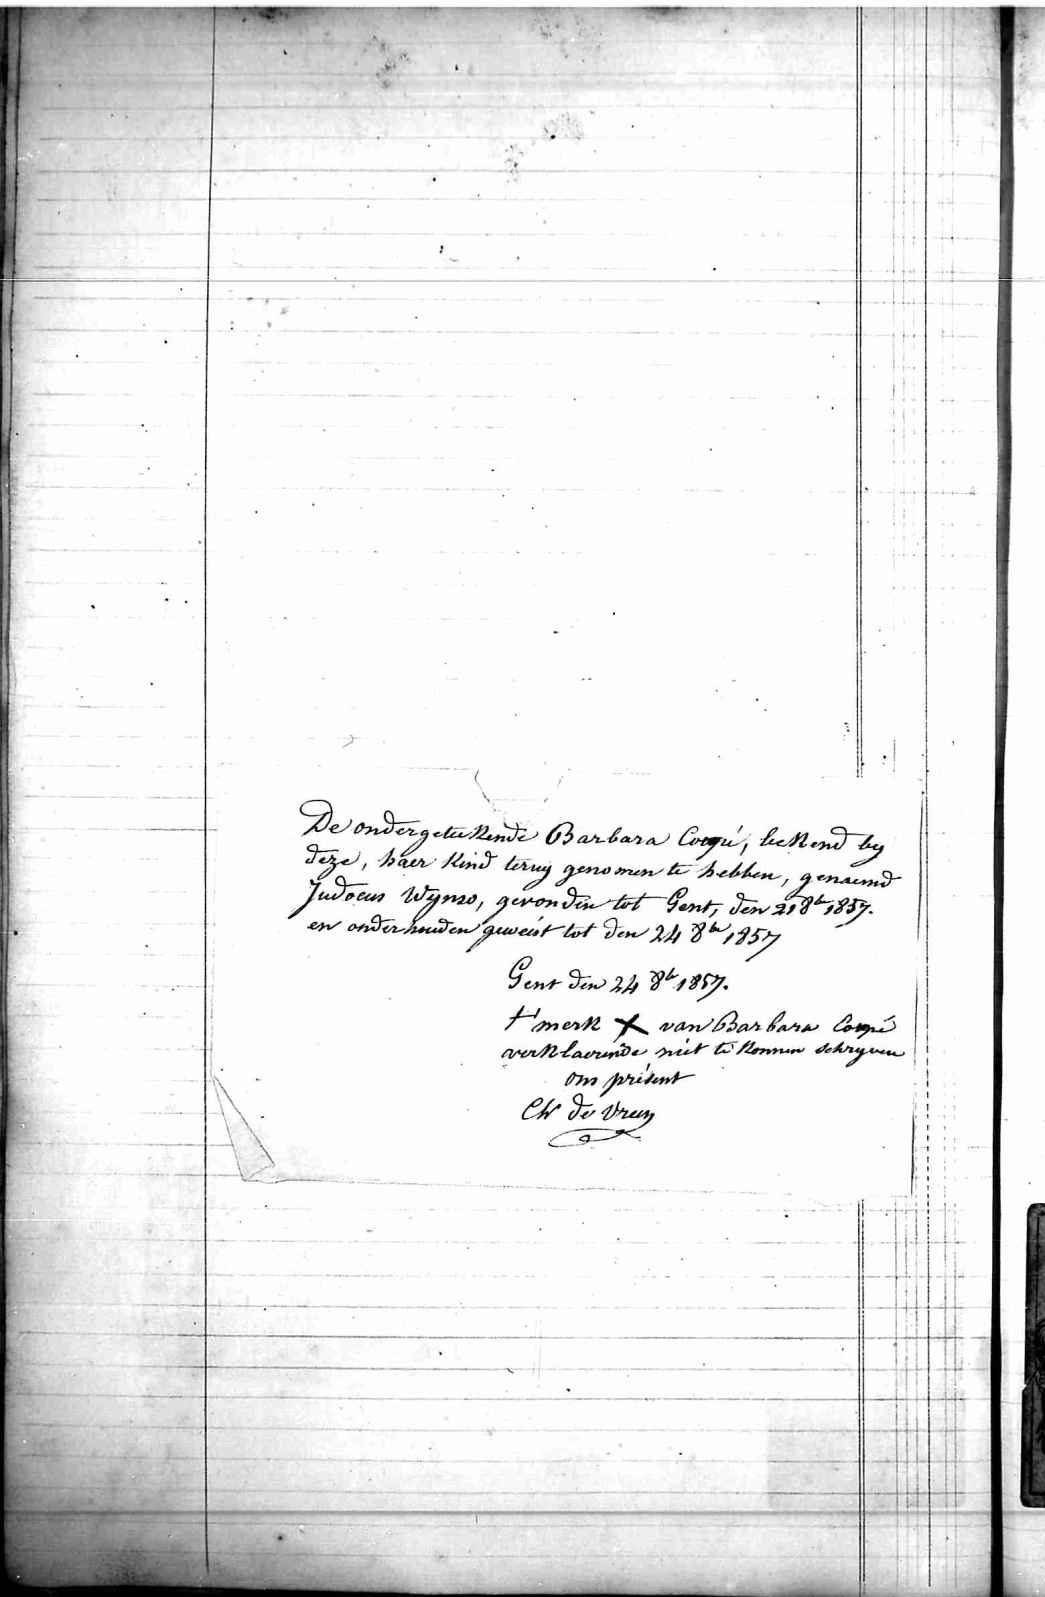 De ondergeteekende Barbara Coppé, bekend by
deze, haer Kind terug genomen te hebben, genaemd
Judocus Wynso, gevonden tot Gent, den 21 8br 1857.
en onderhouden geweest tot den 24 8br 1857
Gent den 24 8br 1857.
t'merk X van Barbara Coppé
verklaerende niet te konnen schryven
ons présent
Ch de Vreey